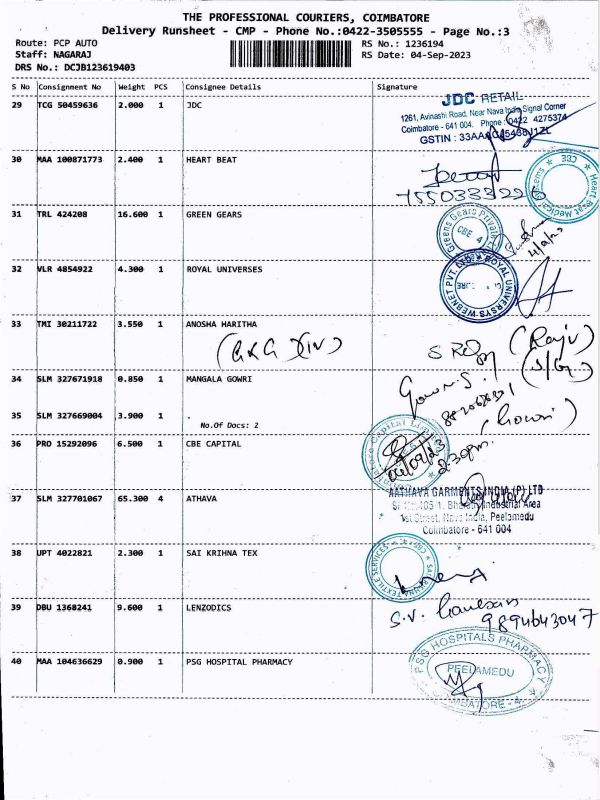 THE PROFESSIONAL COURIERS, COIMBATORE
Delivery Runsheet - CMP - Phone No.:0422-3505555 - Page No.:3
Route: PCP AUTO RS No.: 1236194
Staff: NAGARAJ RS Date: 04-Sep-2023
DRS No.: DCJB123619403
S No Consignment No Weight PCS Consignee Details Signature
29 TCG 50459636 2.000 1 JDC
JDC RETAIL
1261, Avinashi Road, Near Nava India Signal Corner
Coimbatore - 641 004. Phone : 0422 4275374
GSTIN :
30 MAA 100871773 2.400 1 HEART BEAT
7550333226
31 TRL 424208 16.600 1 GREEN GEARS
Greens Gears Private
CBE 4
32 VLR 4854922 4.300 1 ROYAL UNIVERSES
ROYAL UNIVERSYS WEBNET PVT. LTD
33 TMI 30211722 3.550 1 ANOSHA HARITHA
(Raju)
34 SLM 327671918 0.850 1 MANGALA GOWRI
Gowri.S.
35 SLM 327669004 3.900 1 .
No.Of Docs: 2
(Gowri)
36 PRO 15292096 6.500 1 CBE CAPITAL
04/09/23
2.30pm.
37 SLM 327701067 65.300 4 ATHAVA
AATHAVA GARMENTS INDIA (P) LTD
Industrial Area
1st Street, Nava India, Peelamedu
Coimbatore - 641 004
38 UPT 4022821 2.300 1 SAI KRIHNA TEX
SAI KRISHNA TEXTILE SERVICES
39 DBU 1368241 9.600 1 LENZODICS
S.V.
9894643047
40 MAA 104636629 0.900 1 PSG HOSPITAL PHARMACY
PSG HOSPITALS PHARMACY
PEELAMEDU
COIMBATORE - 4